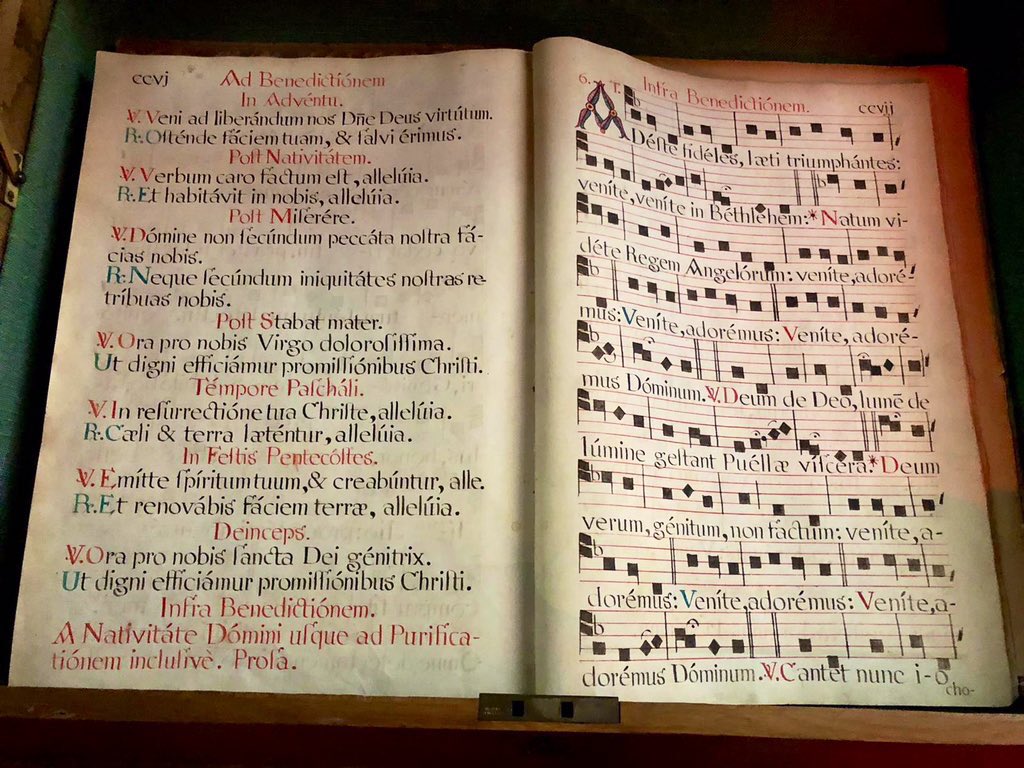 ccvj
Ad Benedictiónem
In Advéntu.
V. Veni ad liberándum nos Dñe Deus virtútum.
R. Osténde fáciem tuam, & salvi érimus.
Post Nativitátem.
V. Verbum caro factum est, allelúia.
R. Et habitávit in nobis, allelúia.
Post Miserére.
V. Dómine non secúndum peccáta nostra fá-
cias nobis.
R. Neque secúndum iniquitátes nostras re-
tríbuas nobis.
Post Stabat mater.
V. Ora pro nobis Virgo dolorosíssima.
Ut digni efficiámur promissiónibus Christi.
Témpore Pascháli.
V. In resurrectióne tua Christe, allelúia.
R. Cæli & terra læténtur, allelúia.
In Festis Pentecóstes.
V. Emítte spíritum tuum, & creabúntur, alle.
R. Et renovábis fáciem terræ, allelúia.
Deinceps.
V. Ora pro nobis sancta Dei génitrix.
Ut digni efficiámur promissiónibus Christi.
Infra Benedictiónem.
A Nativitáte Dómini usque ad Purifica-
tiónem inclusivè. Prosa.
6. T. Infra Benedictiónem. ccvij
ADéste fidéles, læti triumphántes:
veníte, veníte in Béthlehem:* Natum vi-
déte Regem Angelórum: veníte, adoré-
mus: Veníte, adorémus: Veníte, adoré-
mus Dóminum. V. Deum de Deo, lumē de
lúmine gestant Puéllæ víscera:* Deum
verum, génitum, non factum: veníte, a-
dorémus: Veníte, adorémus: Veníte, a-
dorémus Dóminum. V. Cantet nunc i-ō
cho-